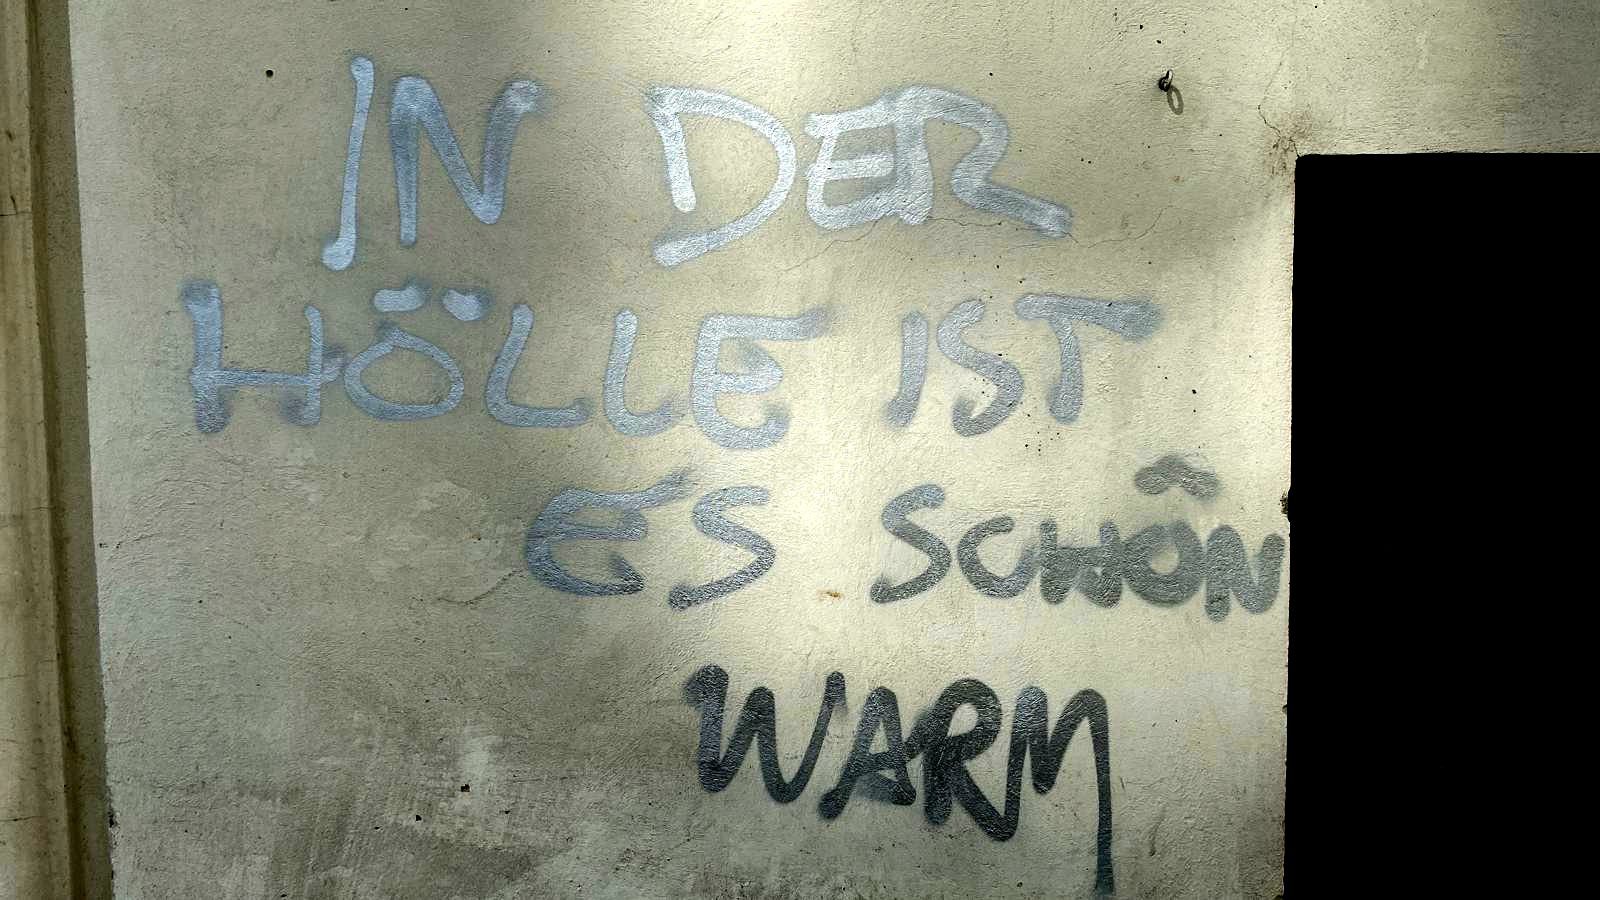 IN DER
HÖLLE IST
ES SCHÖN
WARM